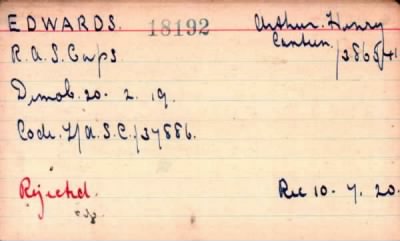 EDWARDS. 18192 Arthur. Henry
R.A.S. Corps
Demob. 20. 2. 19.
Code. T/A.S.C./37886.
Rejected. Rec 10. 7. 20.